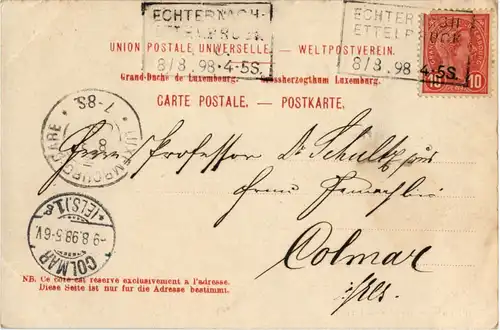 ECHTERNACH-
ETTELBRUCK
8/8.98·4-5S.
ECHTERNACH-
ETTELBRUCK
8/8.98·4-5S.
10 10
UNION POSTALE UNIVERSELLE. — WELTPOSTVEREIN.
Grand-Duché de Luxembourg. Grossherzogthum Luxemburg.
CARTE POSTALE. — POSTKARTE.
LUXEMBOURG-GARE
7-8S.
Herrn Professor Dr Schultz
Colmar
i/Els.
COLMAR
*(ELS.)1.c
-9.8.98.5-6V.
NB. Ce côté est réservé exclusivement à l'adresse.
Diese Seite ist nur für die Adresse bestimmt.